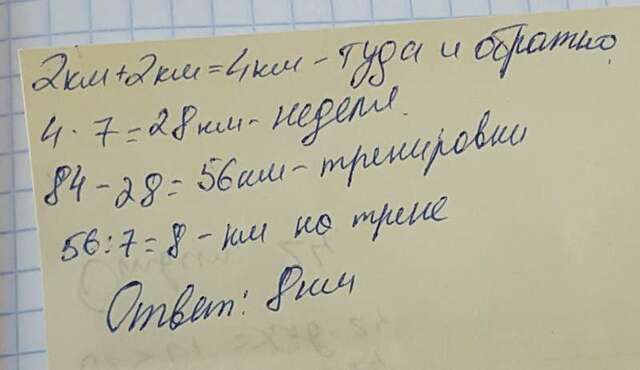 2км+2км=4км - туда и обратно
4 · 7 = 28км - неделя
84 - 28 = 56км - тренировки
56:7=8 - км на трене
Ответ: 8км